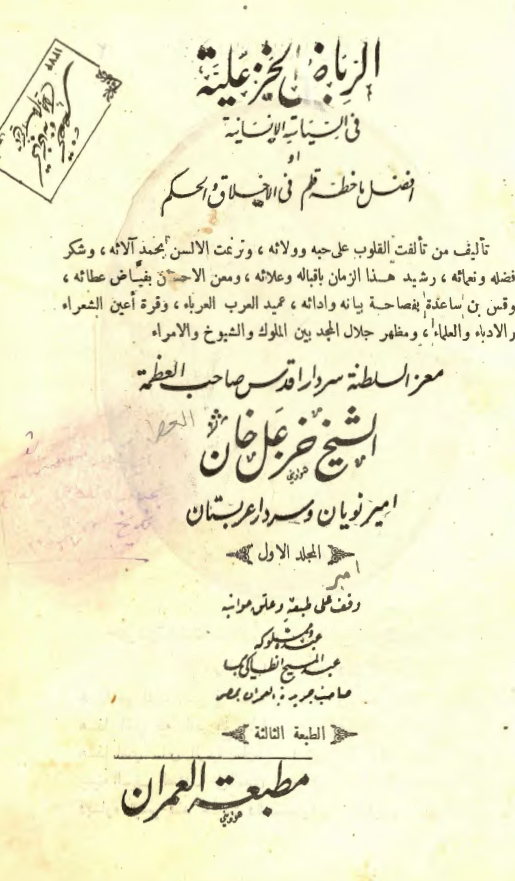 الرياض الخزعلية
في السياسة الإنسانية
او
افضل ما خطه قلم في الاخلاق والحكم
تأليف من تألفت القلوب على حبه وولائه ، وترنمت الالسن بحمد آلائه ، وشكر
فضله ونعمائه ، رشيد هذا الزمان باقباله وعلائه ، ومعن الاحسان بفياض عطائه ،
وقس بن ساعدة بفصاحة بيانه وادائه ، عميد العرب العرباء ، وقرة أعين الشعراء
والادباء والعلماء ، ومظهر جلال المجد بين الملوك والشيوخ والامراء
معز السلطنة سردار اقدس صاحب العظمة
الشيخ خزعل خان
امير نويان وسردار عربستان
المجلد الاول
وقف على طبعه وعلق حواشيه
عبده ومملوكه
عبد المسيح انطاكي بك
صاحب جريدة العمران بمصر
الطبعة الثالثة
مطبعة العمران